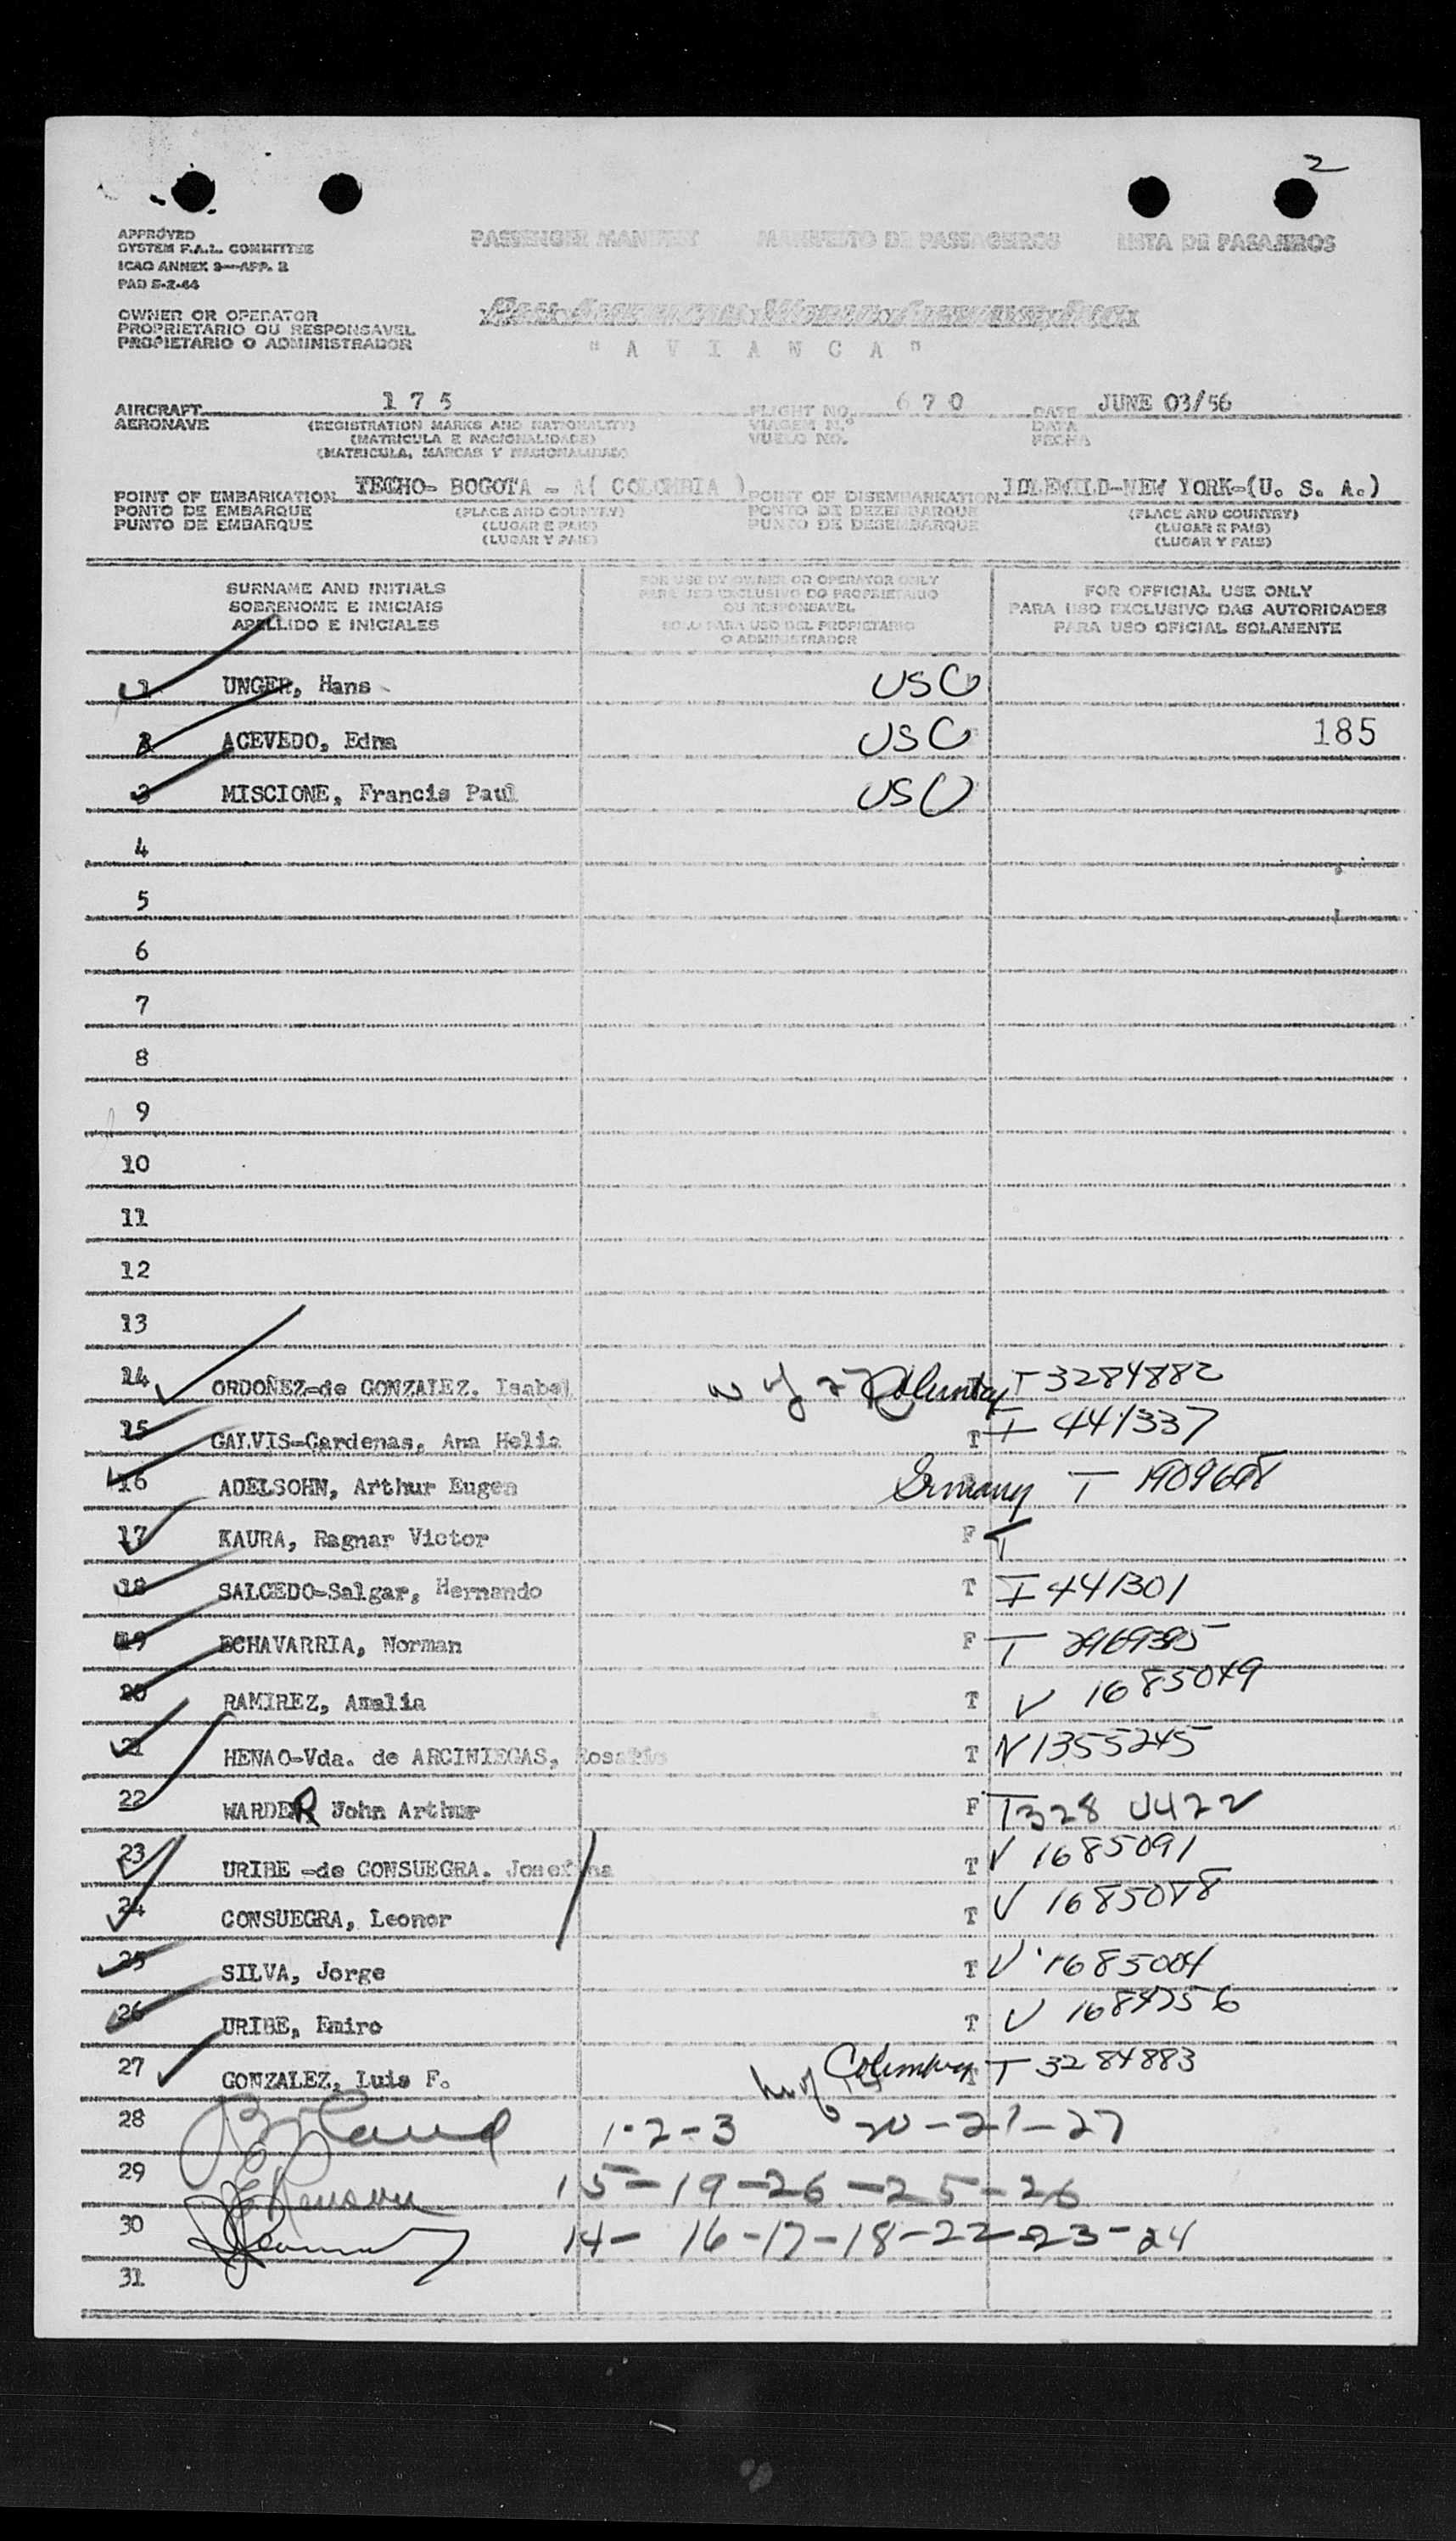 2
APPROVED
SYSTEM F.A.L. COMMITTEE
ICAO ANNEX 9—APP. 2
PAD 5-2-44
PASSENGER MANIFEST MANIFESTO DE PASSAGEIROS LISTA DE PASAJEROS
OWNER OR OPERATOR
PROPRIETARIO OU RESPONSAVEL
PROPIETARIO O ADMINISTRADOR
Pan American World Airways, Inc.
" A V I A N C A "
AIRCRAFT 175 FLIGHT NO. 670 DATE JUNE 03/56
AERONAVE (REGISTRATION MARKS AND NATIONALITY) VIAGEM N.º DATA
(MATRICULA E NACIONALIDADE) VUELO NO. FECHA
(MATRICULA, MARCAS Y NACIONALIDAD)
POINT OF EMBARKATION TECHO- BOGOTA - A( COLOMBIA ) POINT OF DISEMBARKATION IDLEWILD-NEW YORK-(U. S. A.)
PONTO DE EMBARQUE (PLACE AND COUNTRY) PONTO DE DEZEMBARQUE (PLACE AND COUNTRY)
PUNTO DE EMBARQUE (LUGAR E PAIS) PUNTO DE DESEMBARQUE (LUGAR E PAIS)
(LUGAR Y PAIS) (LUGAR Y PAIS)
SURNAME AND INITIALS
SOBRENOME E INICIAIS
APELLIDO E INICIALES
FOR USE BY OWNER OR OPERATOR ONLY
PARA USO EXCLUSIVO DO PROPRIETARIO
OU RESPONSAVEL
SOLO PARA USO DEL PROPIETARIO
O ADMINISTRADOR
FOR OFFICIAL USE ONLY
PARA USO EXCLUSIVO DAS AUTORIDADES
PARA USO OFICIAL SOLAMENTE
1 UNGER, Hans USC
2 ACEVEDO, Edna USC 185
3 MISCIONE, Francis Paul USC
4
5
6
7
8
9
10
11
12
13
14 ORDOÑEZ-de GONZALEZ. Isabel T 3284882
15 GALVIS-Cardenas, Ana Helia T I 441337
16 ADELSOHN, Arthur Eugen Germany T
17 KAURA, Ragnar Victor F T
18 SALCEDO-Salgar, Hernando T I 441301
19 ECHAVARRIA, Norman F T
20 RAMIREZ, Amalia T V 1685049
21 HENAO-Vda. de ARCINIEGAS, Rosario T V1355245
22 WARDER John Arthur F T328
23 URIBE -de CONSUEGRA. Josefina T V 1685091
24 CONSUEGRA, Leonor T V 1685088
25 SILVA, Jorge T V 1685004
26 URIBE, Emiro T V 1684756
27 GONZALEZ, Luis F. T T 3284883
28 1-2-3 20-21-27
29 15-19-26-25-26
30 14- 16-17-18-22-23-24
31